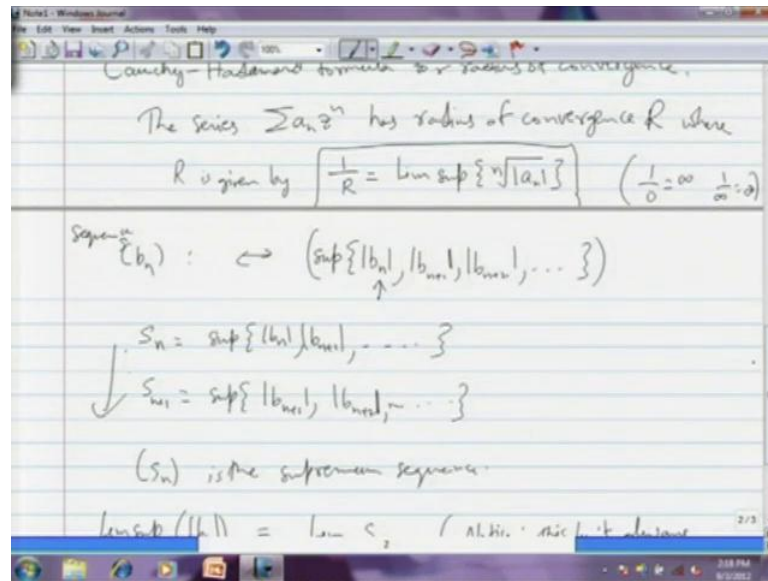 Note1 - Windows Journal
File Edit View Insert Actions Tools Help
100%
Cauchy-Hadamard formula for radius of convergence.
The series Σ aₙ zⁿ has radius of convergence R where
R is given by 1/R = Lim sup { ⁿ√|aₙ| } (1/0 = ∞ 1/∞ = 0)
Sequence
(bₙ) : ↔ (sup{ |bₙ|, |bₙ₊₁|, |bₙ₊₂|, ... })
↑
Sₙ = sup{ |bₙ|, |bₙ₊₁|, ..... }
Sₙ₊₁ = sup{ |bₙ₊₁|, |bₙ₊₂|, ... }
(Sₙ) is the supremum sequence.
Lim sup (|bₙ|) = Lim Sₙ ( this limit always
2
2/3
2:18 PM
9/3/2012